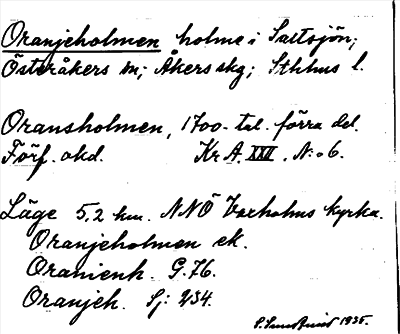 Oranjeholmen holme i Saltsjön;
Österåkers sn; Åkers skg; Sthlms l.
Oransholmen, 1700-tal. förra del.
Förf. okd. Kr A. XXII. N:o 6.
Läge 5,2 km. NNÖ Vaxholms kyrka.
Oranjeholmen ek.
Oranienh. G. 76.
Oranjeh. Sj: 234.
1935.